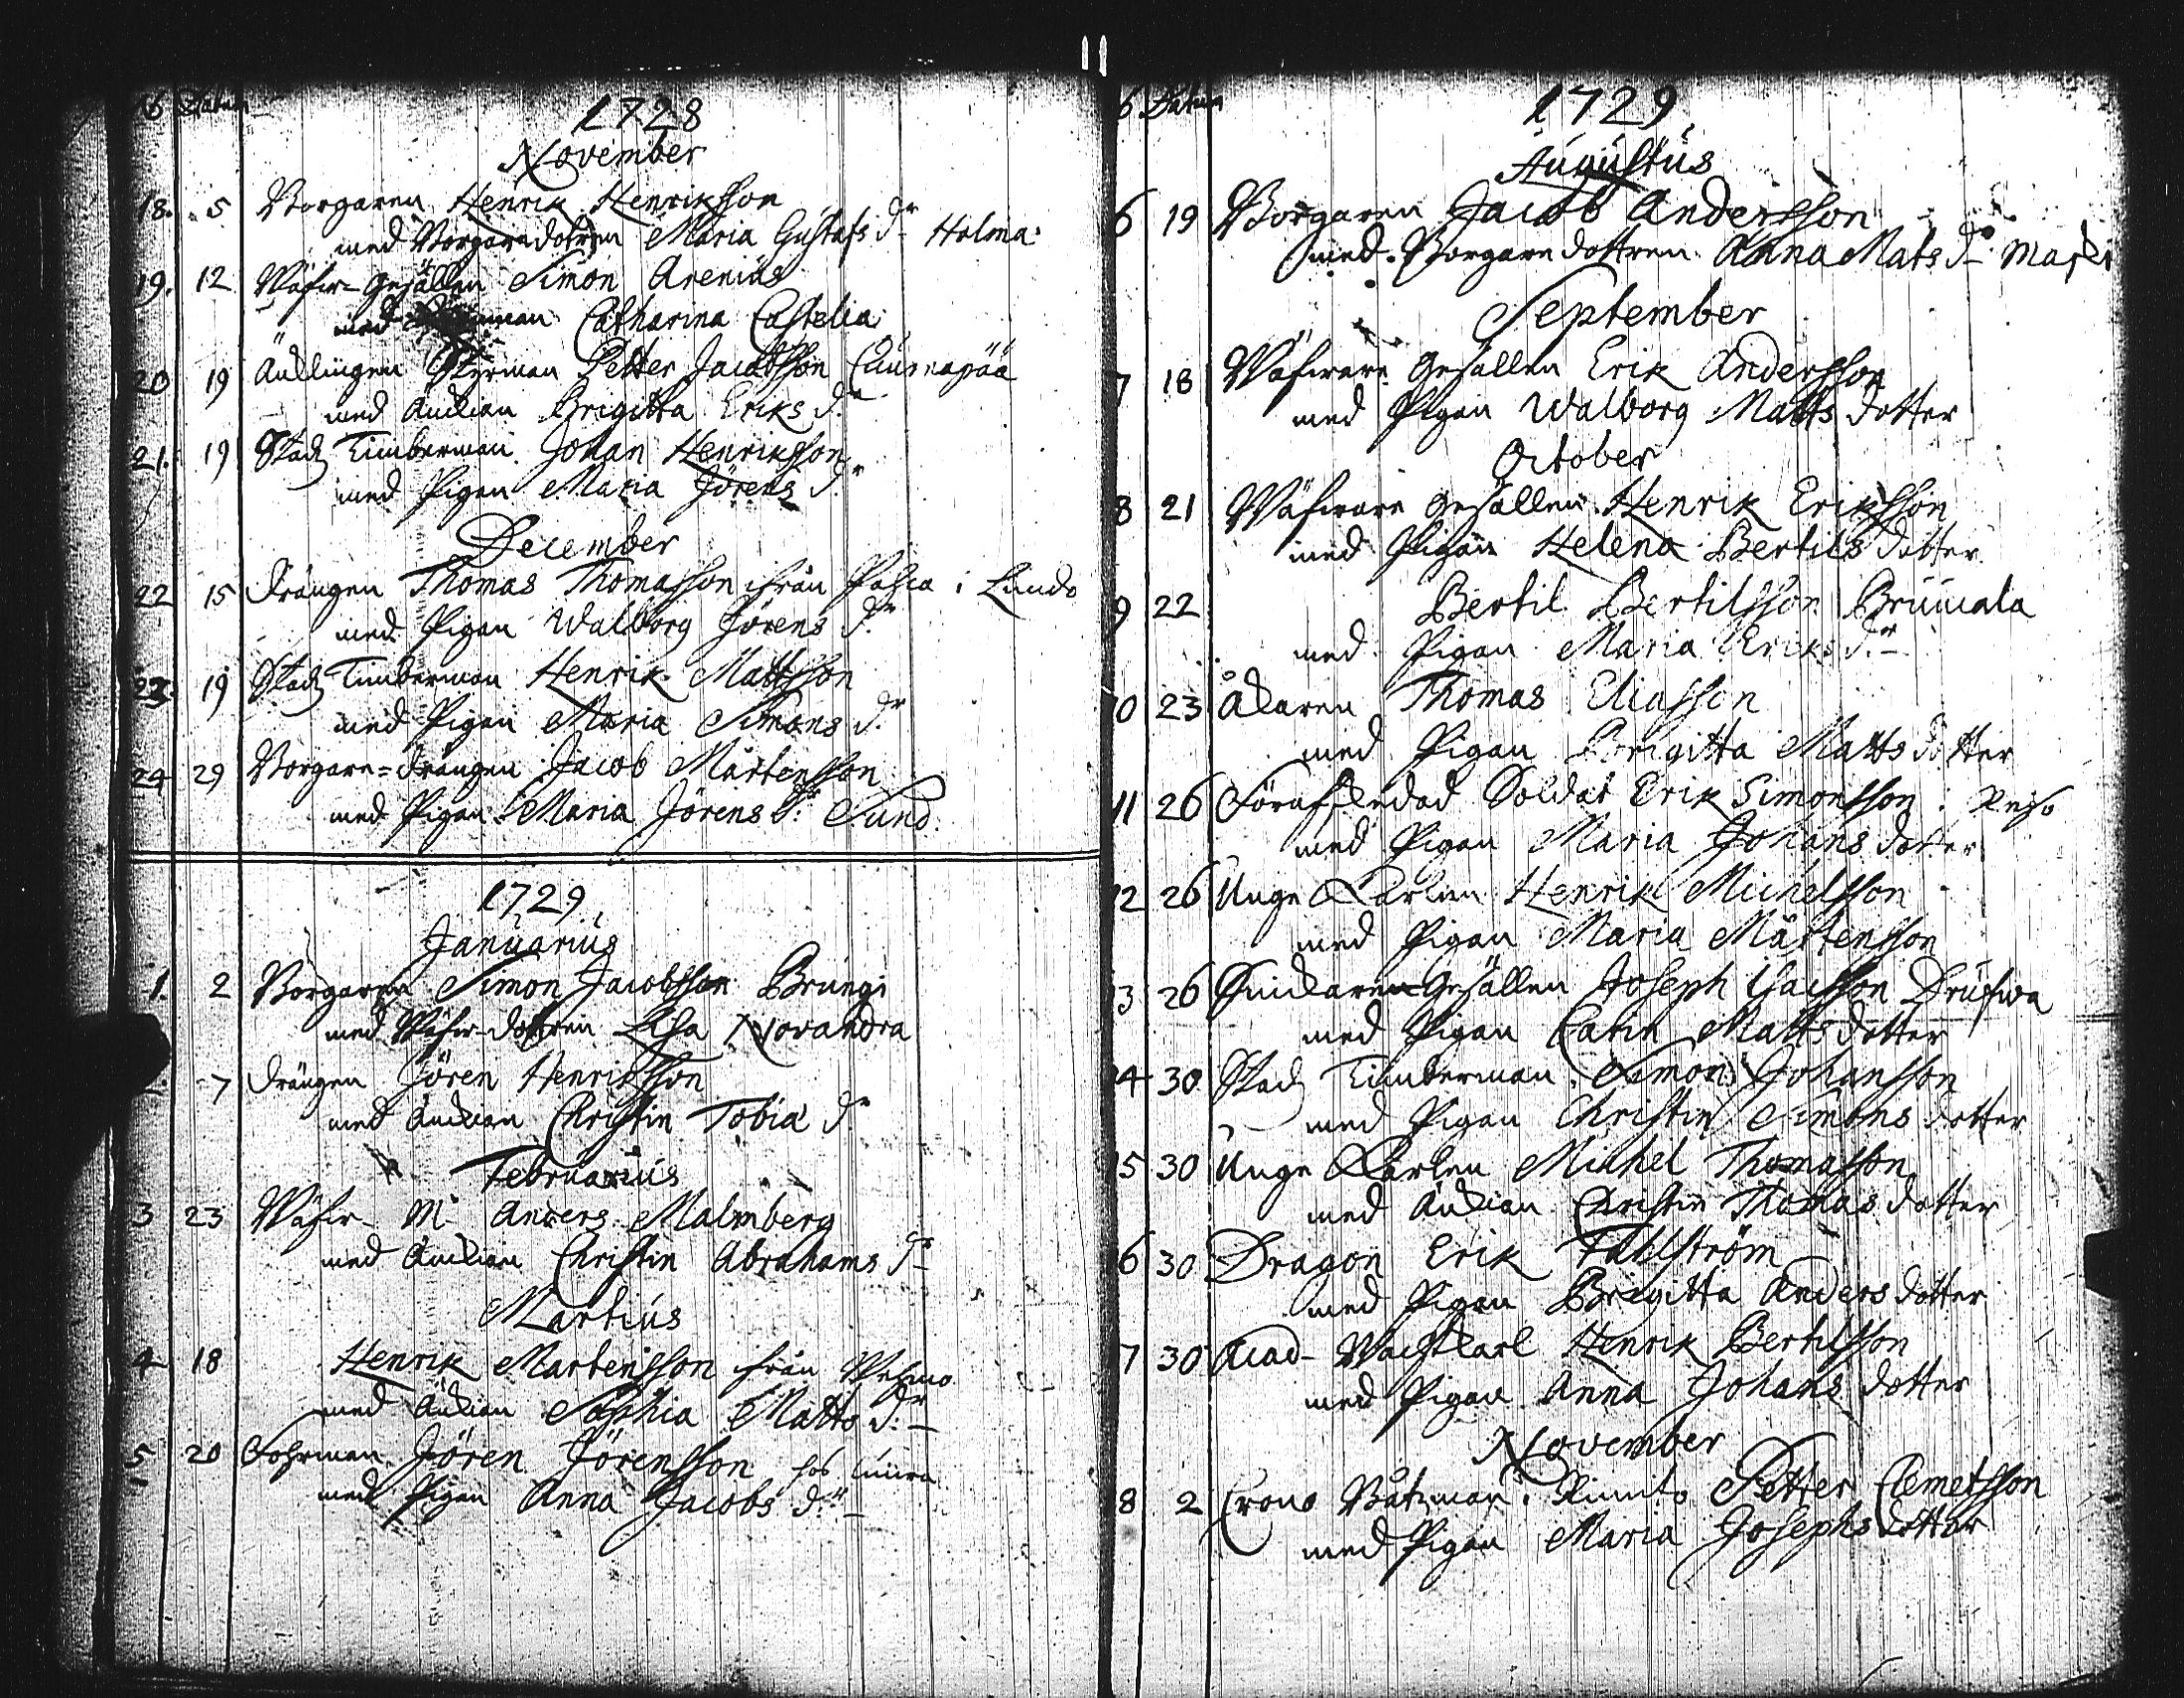 Datum
1728
November
18. 5 Borgaren Henrik Henriksson
med Borgaredottren Maria Gustafs dr Holma
19. 12 Wäfw-Gesällen Simon Arenius
med Catharina Castelia
20 19 Änklingen Styrman Petter Jacobsson
med Änkian Brigitta Eriks dr
21. 19 Stads Timberman Johan Henriksson
med Pigan Maria Jörens dr
December
22 15 Drängen Thomas Thomasson ifrån i Lundo
med Pigan Walborg Jörens dr
23. 19 Stads Timberman Henrik Mattsson
med Pigan Maria Simons dr
24 29 Borgare-Drängen Jacob Mårtensson
med Pigan Maria Jörens dr Sund
1729
Januarius
1. 2 Borgaren Simon Jacobsson Brungi
med Wäfw-dottren Lisa Novandra
7 Drängen Jören Henriksson
med Änkian Christin Tobia dr
Februarius
3 23 Wäfw- Mr Anders Malmberg
med Änkian Christin Abrahams dr
Martius
4 18 Henrik Martensson ifrån Wehmo
med Änkian Sophia Matts dr
5 20 Fohrman Jören Jörensson hos
med Pigan Anna Jacobs dr
6 Datum
1729
Augustus
6 19 Borgaren Jacob Andersson
med Borgare dottren Anna Mats dr
September
7 18 Wäfware Gesällen Erik Andersson
med Pigan Walborg Matts dotter
October
8 21 Wäfware Gesällen Henrik Eriksson
med Pigan Helena Bertils dotter
9 22 Bertil Bertilsson Bruumala
med Pigan Maria Eriks dr
10 23 Åkaren Thomas Eliasson
med Pigan Brigitta Matts dotter
11 26 Förafskedad Soldat Erik Simonsson
med Pigan Maria Johans dotter
12 26 Unge Karlen Henrik Michelsson
med Pigan Maria Mårtensson
13 26 Snickaren Gesällen Joseph Isacsson Drufwa
med Pigan Carin Matts dotter
14 30 Stads Timberman Simon Johansson
med Pigan Christin Simons dotter
15 30 Unge Karlen Michel Thomasson
med Änkian Christin Thomas dotter
16 30 Dragon Erik Fahlström
med Pigan Brigitta Anders dotter
17 30 Acad- Wachtkarl Henrik Bertilsson
med Pigan Anna Johans dotter
November
18 2 Crono Båtzman i Rimito Petter Clemetsson
med Pigan Maria Josephs dotter